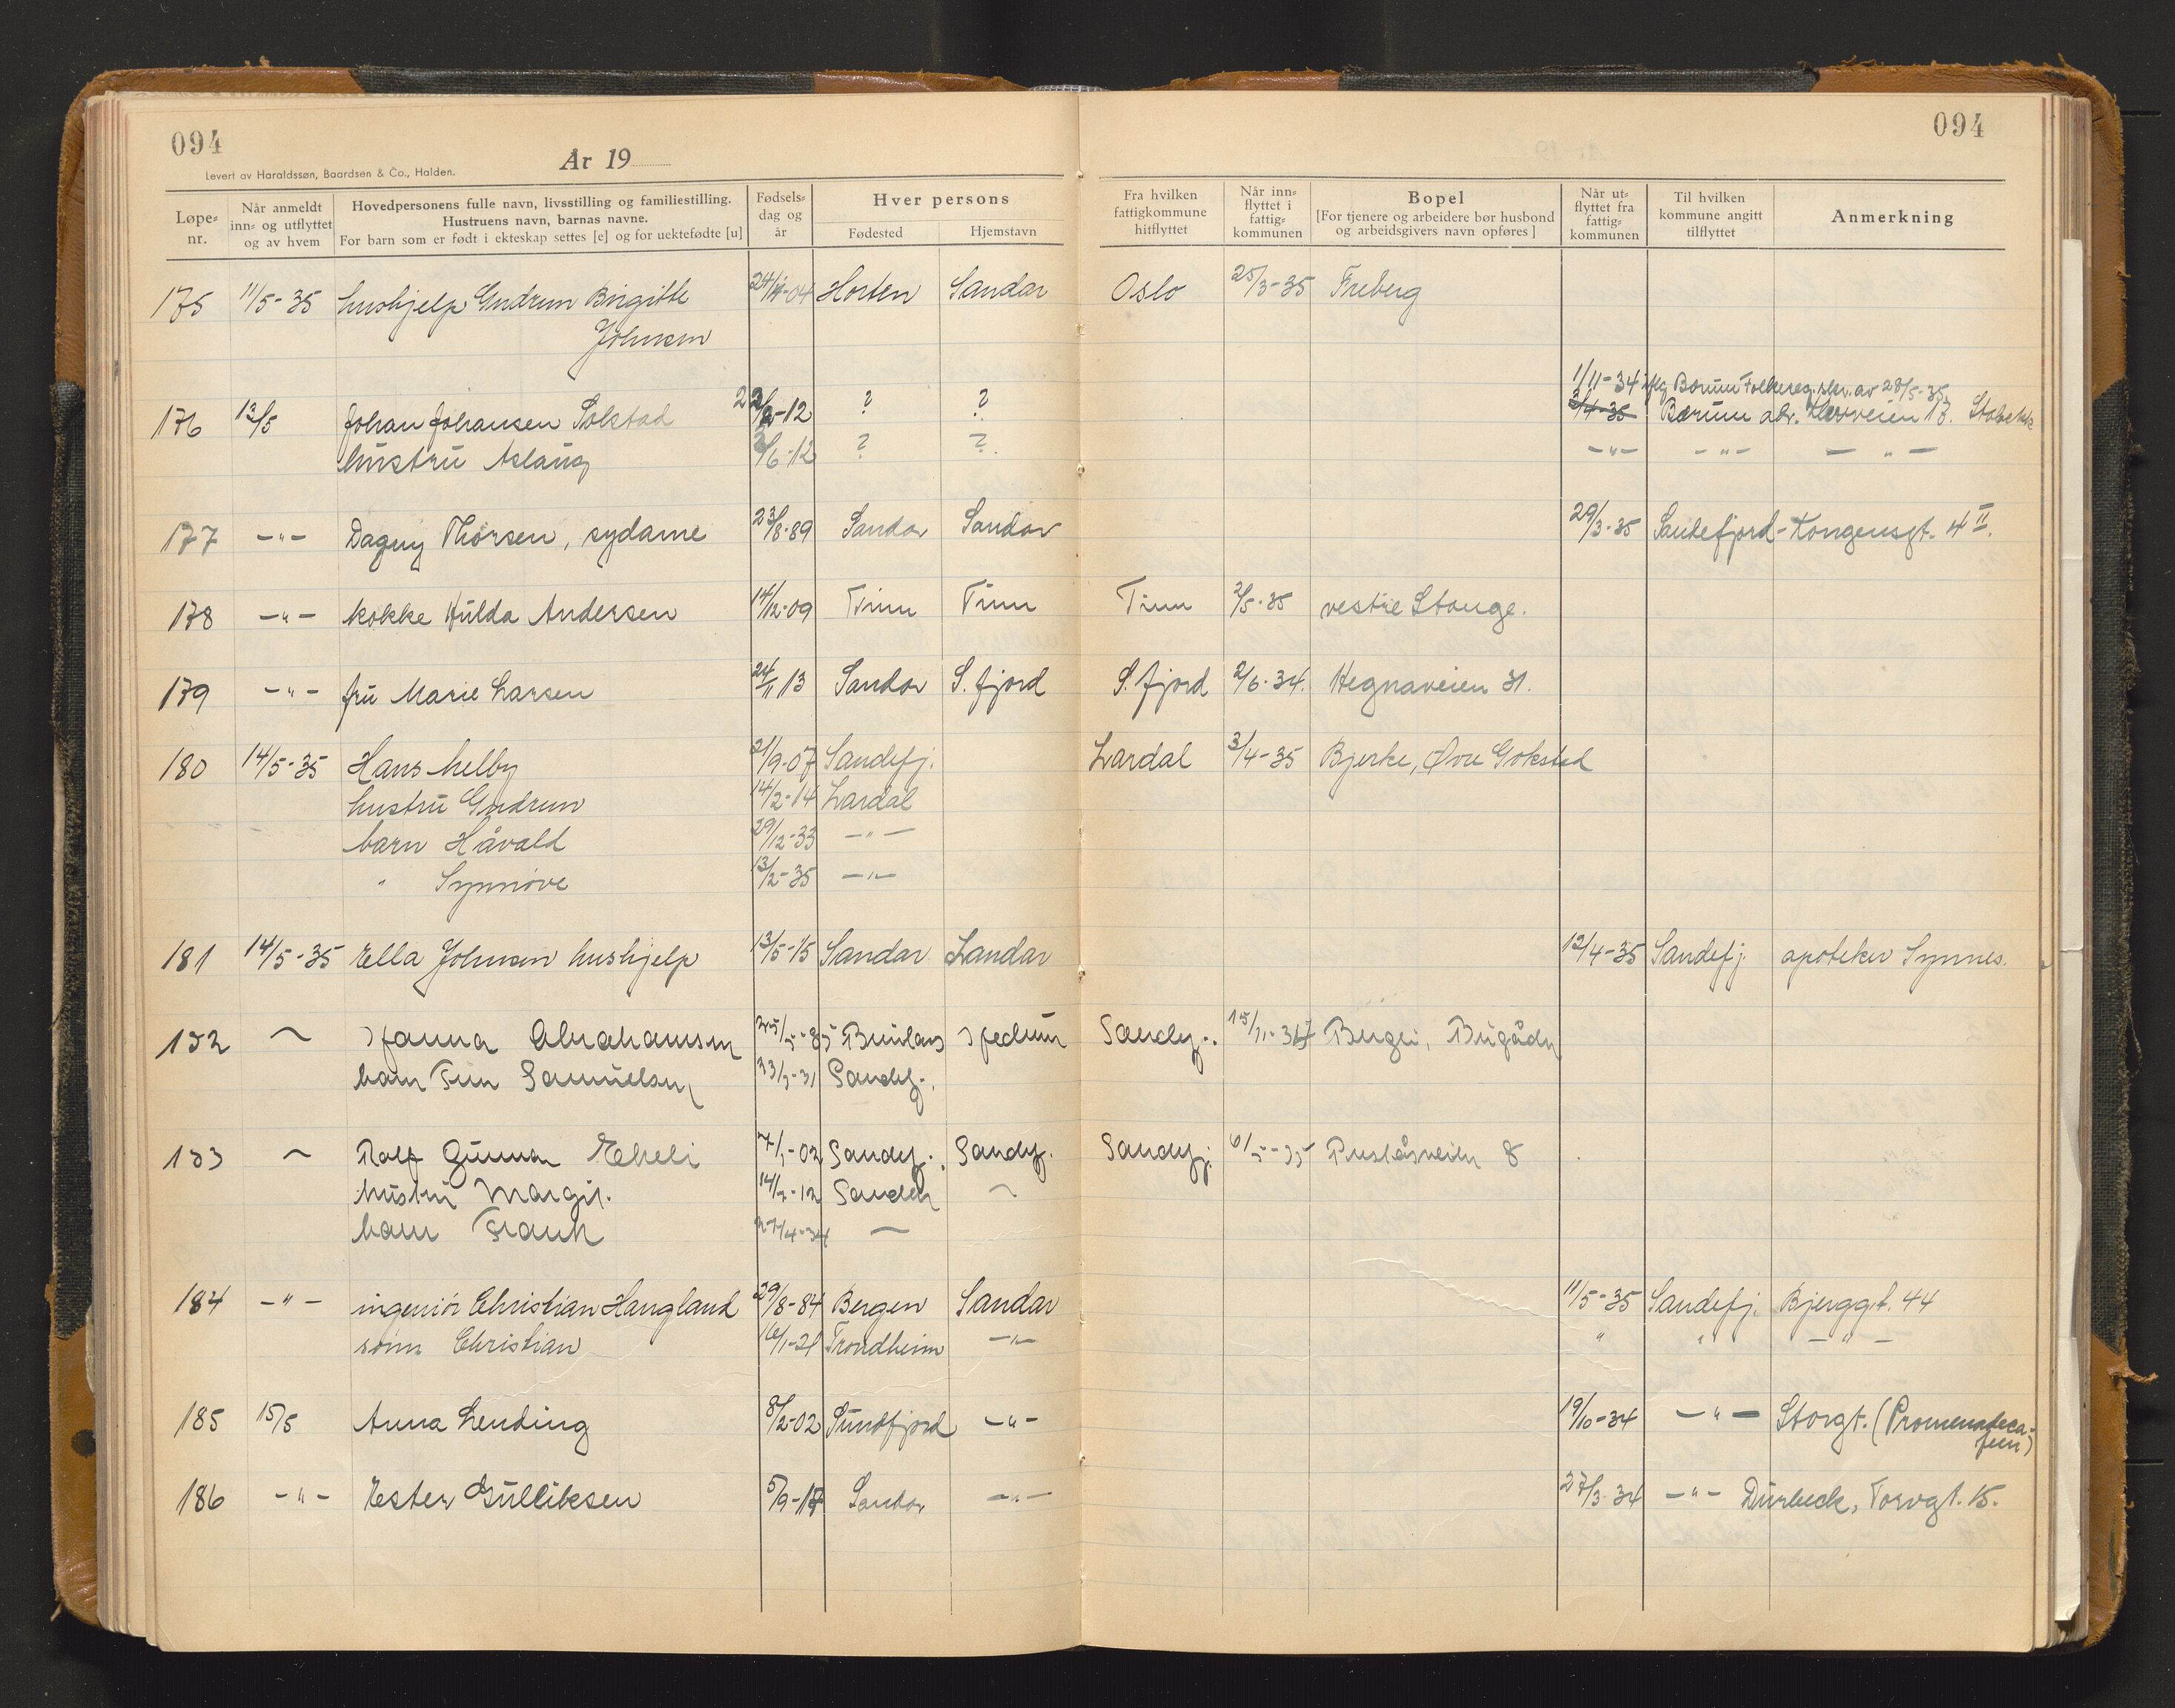 094
094
År 19
Levert av Haraldssøn, Baardsen & Co., Halden.
Løpe-nr. Når anmeldt inn- og utflyttet og av hvem Hovedpersonens fulle navn, livsstilling og familiestilling. Hustruens navn, barnas navne. For barn som er født i ekteskap settes [e] og for uektefødte [u] Fødsels-dag og år Hver persons Fødested Hjemstavn Fra hvilken fattigkommune hitflyttet Når inn-flyttet i fattig-kommunen Bopel [For tjenere og arbeidere bør husbond og arbeidsgivers navn opføres] Når ut-flyttet fra fattig-kommunen Til hvilken kommune angitt tilflyttet Anmerkning
175 11/5-35 hushjelp Gudrun Birgitte 24/4-04 Horten Sandar Oslo 25/3-35 Freberg
Johnsen
1/11-34 iflg Bærum Folkereg. skr. av 28/5-35.
176 13/5 Johan Johansen Solstad -12 ? ? 2/4-35 Bærum adr. 13. Stabekk
hustru Aslaug 3/6-12 ? ? -"- -"- -"-
177 -"- Dagny Thorsen, sydame 23/8-89 Sandar Sandar 29/3-35 Sandefjord - Kongensgt. 4 II.
178 -"- kokke Hulda Andersen 14/12-09 Tinn Tinn Tinn 2/5-35 vestre Stange.
179 -"- fru Marie Larsen 24/11 13 Sandar S. fjord S. fjord 2/6-34. Hegnaveien 31.
180 14/5-35 Hans Melby 21/9-07 Sandefj. Lardal 3/4-35 Bjerke, Øvre Gokstad
hustru Gudrun 14/2-14 Lardal
barn Håvald 29/12-33 -"-
" Synnøve 13/2-35 -"-
181 14/5-35 Ella Johnsen hushjelp 13/5-15 Sandar Sandar 12/4-35 Sandefj. apoteker Synnes.
182 ~ Hanna Abrahamsen 25/5-85 Brunlanes Hedrum Sandefj. 15/11-34 Bugården
barn Finn Samuelsen 23/5-31 Sandefj.
183 ~ Ralf Gunnar Ekeli 7/1-02 Sandefj. Sandefj. Sandefj. 6/5-35 Pusåsveien 8
hustru Margit. 14/2-12 Sandar ~
barn Frank 27/4-34 ~
184 -"- ingeniør Christian Haugland 29/8-84 Bergen Sandar 11/5-35 Sandefj. Bjerggt. 44
sønn Christian 16/1-21 Trondheim -"- " " -"-
185 15/5 Anna Lending 8/2-02 Sundfjord -"- 19/10-34 -"- Storgt. (Promenadeca-
feen)
186 -"- Ester Gulliksen 5/9-17 Sandar -"- 27/3-34 -"- Durbeck, Torvgt. 15.